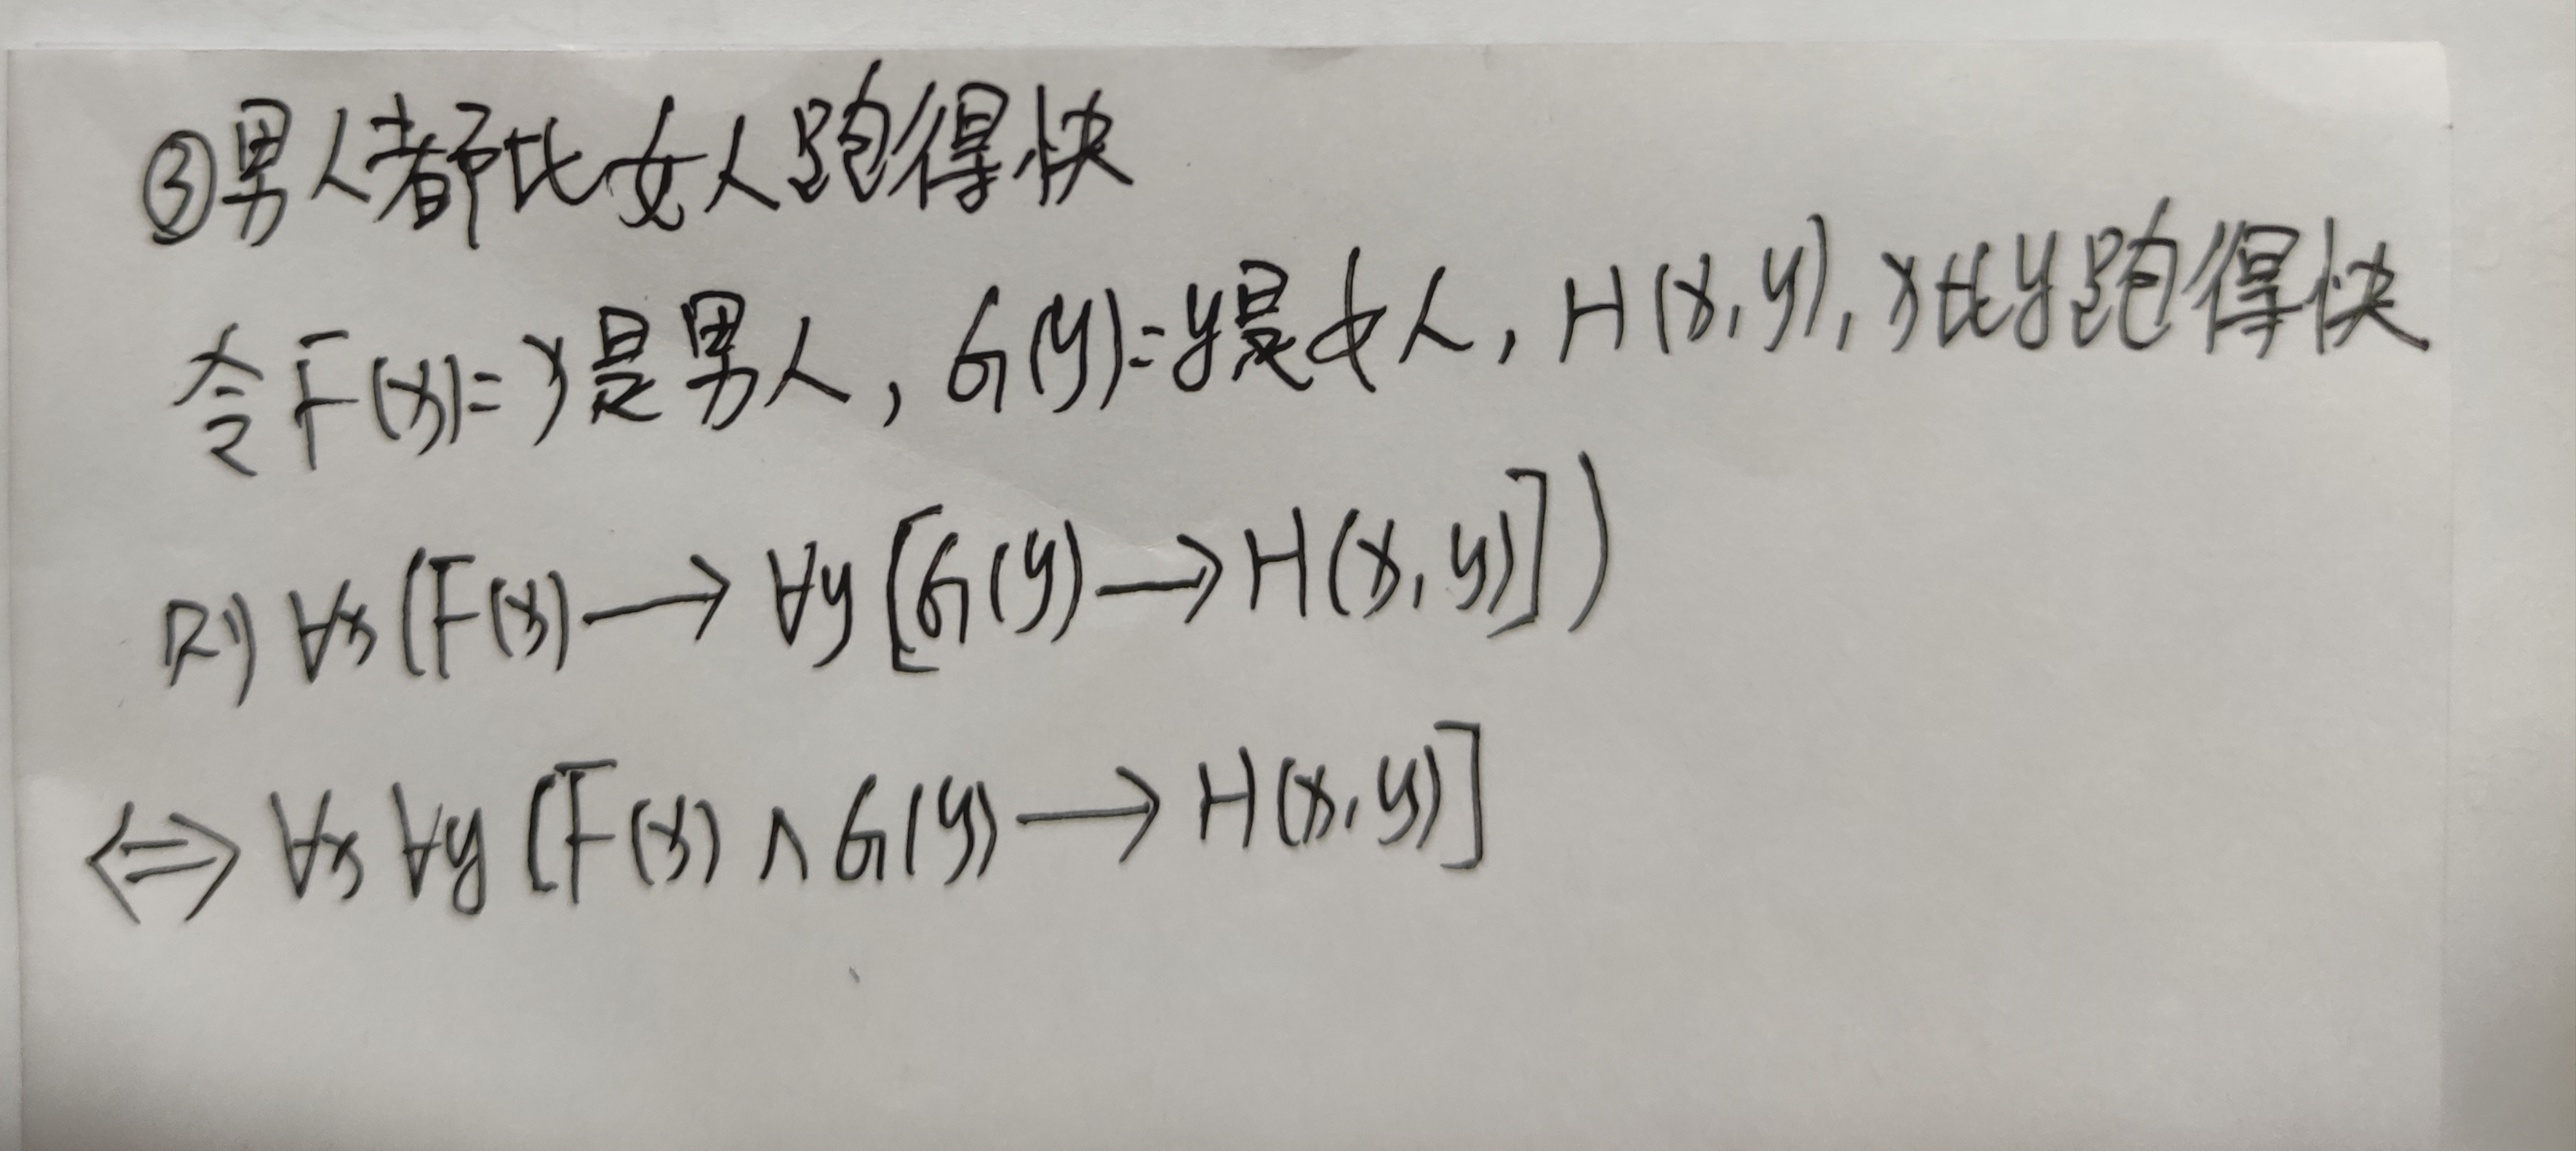 ③男人都比女人跑得快
令F(x)=x是男人,G(y)=y是女人,H(x,y),x比y跑得快
则∀x(F(x)→∀y[G(y)→H(x,y)])
⇔∀x∀y[F(x)∧G(y)→H(x,y)]